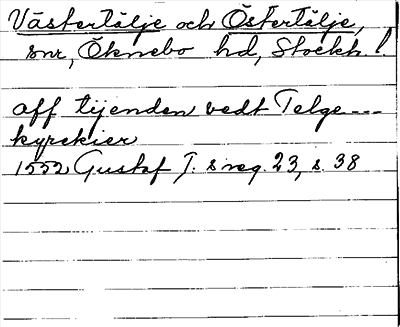 Västertälje och Östertälje,
snr, Öknebo hd, Stockh. l.
aff tijenden vedt Telge---
kyrekier
1552 Gustaf I:s reg. 23, s. 38